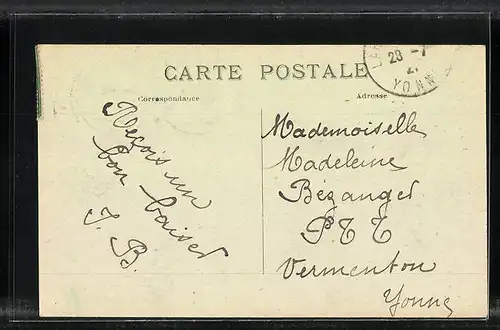 CARTE POSTALE
Correspondance
Adresse
28 -7
YONNE
Reçois un
bon baiser
J. B.
Mademoiselle
Madeleine
Bézanger
P.T.T
Vermenton
Yonne